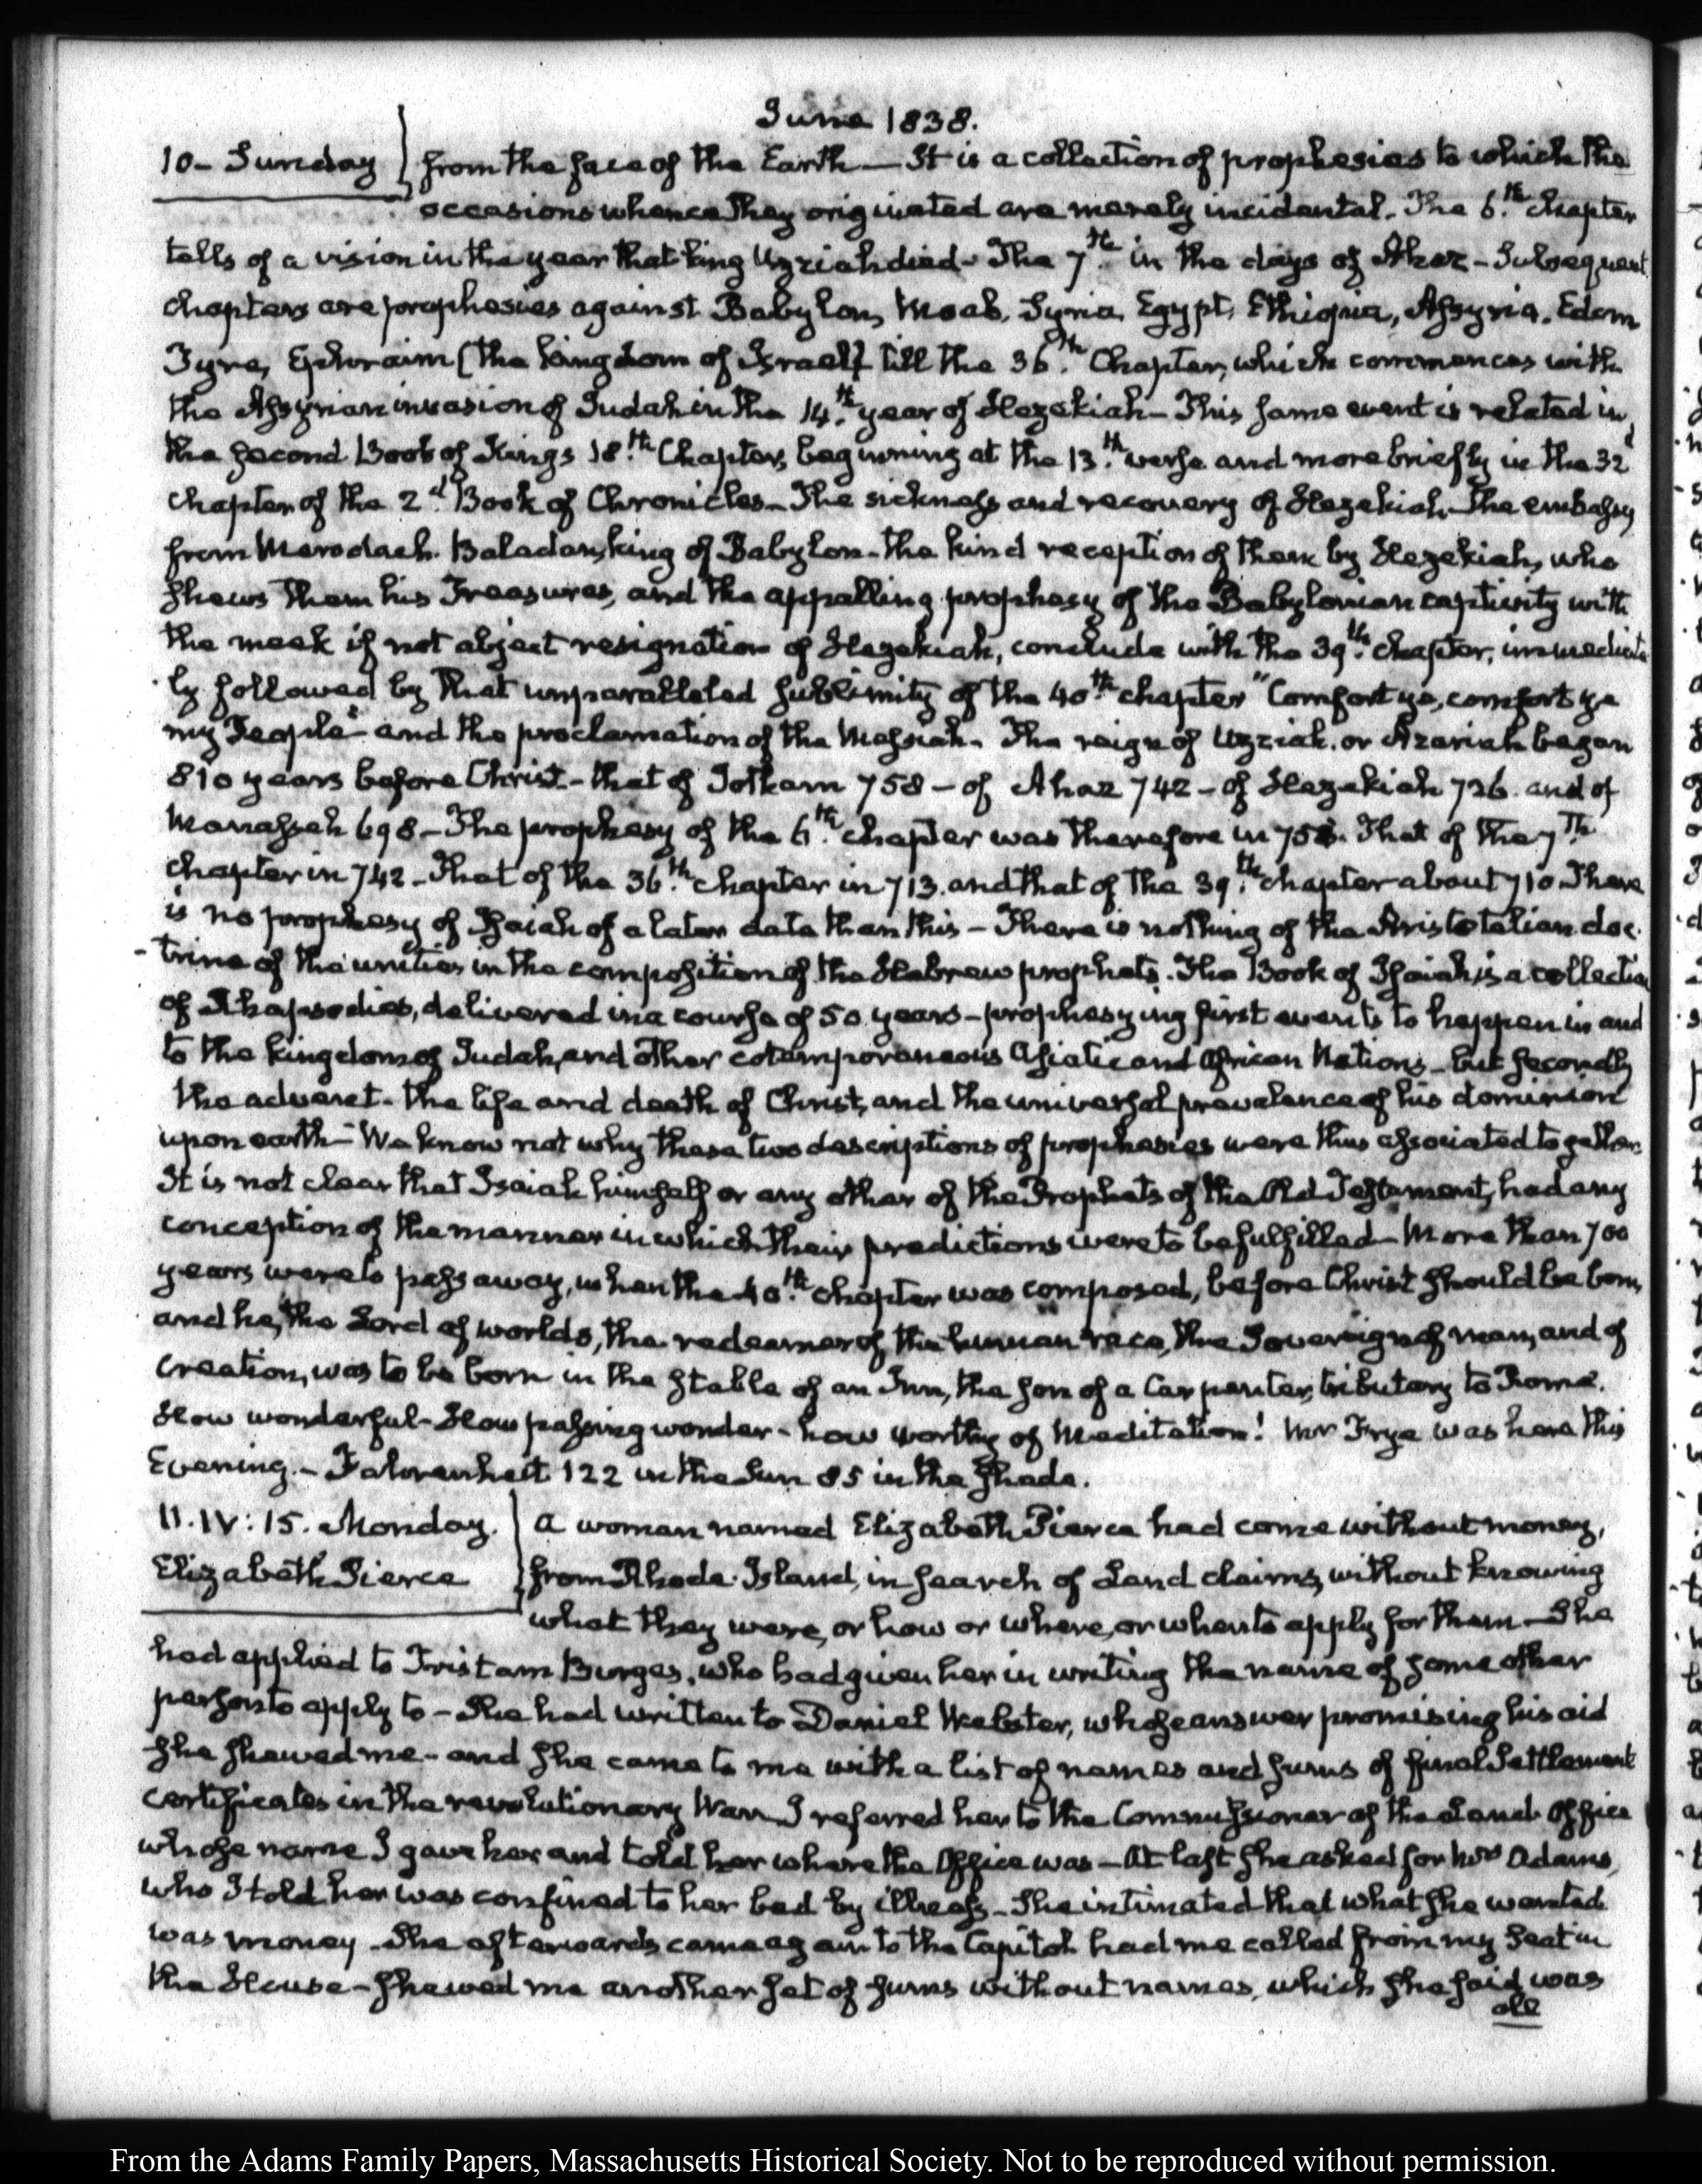 June 1838.
10 – Sunday
from the face of the Earth — It is a collection of prophesies to which the
occasions whence they originated are merely incidental. The 6.th chapter
tells of a vision in the year that king Uzziah died – The 7.th in the days of Ahaz – Subsequent
chapters are prophesies against Babylon, Moab, Syria, Egypt, Ethiopia, Assyria, Edom
Tyre, Ephraim (the kingdom of Israel) till the 36.th Chapter, which commences with
the Assyrian invasion of Judah in the 14.th year of Hezekiah – This same event is related in
the second Book of Kings 18.th Chapter, beginning at the 13.th verse and more briefly in the 32d
chapter of the 2.d Book of Chronicles – The sickness and recovery of Hezekiah – The embassy
from Merodach Baladan, king of Babylon – the kind reception of them by Hezekiah, who
shews them his Treasures, and the appalling prophesy of the Babylonian captivity with
the meek if not abject resignation of Hezekiah, conclude with the 39.th chapter, immediate
ly followed by that unparalleled sublimity of the 40.th chapter "Comfort ye, comfort ye
my People" and the proclamation of the Messiah. The reign of Uzziah, or Azariah began
810 years before Christ – that of Jotham 758 – of Ahaz 742 – of Hezekiah 726. and of
Manasseh 698 – The prophesy of the 6.th chapter was therefore in 758. That of the 7.th
chapter in 742 – That of the 36.th chapter in 713. and that of the 39.th chapter about 710 There
is no prophesy of Isaiah of a later date than this – There is nothing of the Aristotelian doc
-trine of the unities in the composition of the Hebrew prophets. The Book of Isaiah is a collection
of Rhapsodies, delivered in a course of 50 years – prophesying first events to happen in and
to the kingdom of Judah, and other cotemporaneous Asiatic and African Nations – but secondly
the advent – the life and death of Christ, and the universal prevalence of his dominion
upon earth – We know not why these two descriptions of prophesies were thus associated together.
It is not clear that Isaiah himself or any other of the Prophets of the Old Testament, had any
conception of the manner in which their predictions were to be fulfilled – More than 700
years were to pass away, when the 40.th chapter was composed, before Christ should be born,
and he, the Lord of worlds, the redeemer of the human race, the Sovereign of man, and of
creation, was to be born in the stable of an Inn, the son of a Carpenter, tributary to Rome.
How wonderful – How passing wonder – how worthy of Meditation! Mr Frye was here this
Evening. – Fahrenheit 122 in the Sun 85 in the shade.
11. IV: 15. Monday.
Elizabeth Pierce
A woman named Elizabeth Pierce had come without money,
from Rhode-Island, in search of Land claims, without knowing
what they were, or how or where, or when to apply for them – She
had applied to Tristam Burges, who had given her in writing the name of some other
person to apply to – She had written to Daniel Webster, whose answer promising his aid
she shewed me – and she came to me with a list of names and sums of final Settlement
certificates in the revolutionary War. I referred her to the Commissioner of the Land Office
whose name I gave her and told her where the Office was – At last she asked for Mrs Adams,
who I told her was confined to her bed by illness – She intimated that what she wanted
was money – She afterwards came again to the Capitol had me called from my seat in
the House – shewed me another set of sums without names, which she said was
all
From the Adams Family Papers, Massachusetts Historical Society. Not to be reproduced without permission.